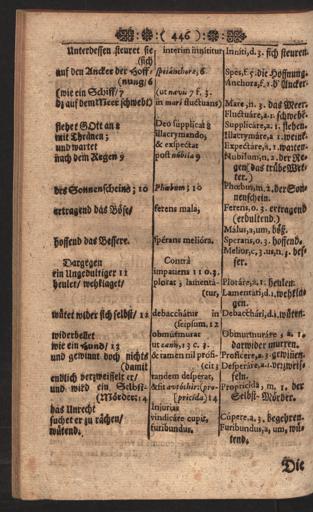 ( 446 )
Unterdessen steuret sie (sich
auf den Ancker der Hoff- nung/6
(wie ein Schiff/7
das auf dem Meer schwebt)
flehet GOtt an 8
mit Thränen;
und wartet
nach dem Regen 9
des Sonnenscheins; 10
ertragend das Böse/
hoffend das Bessere.
Dargegen
ein Ungedultiger 11
heulet/ wehklaget/
wütet wider sich selbst/ 12
widerbellet
wie ein Hund/ 13
und gewinnt doch nichts (damit
endlich verzweifelt er/
und wird ein Selbst- (Mörder: 14
das Unrecht
suchet er zu rächen/
wütend.
interim innititur
spei anchoræ, 6
(ut navis 7 f. 3.
in mari fluctuans)
Deo supplicat 8
illacrymando,
& exspectat
post nubila 9
Phœbum; 10
ferens mala,
spérans melióra.
Contrà
impatiens 11 o. 3.
plorat; lamentá- (tur,
debacchátur in (seipsum, 12
obmúrmurat
ut canis, 13 c. 3.
& tamen nil profi- (cit;
tandem desperat,
& fit avtóchir, (pro- (pricida) 14
Injurias
vindicáre cupit,
furibundus.
Inniti, d. 3. sich steuren.
Spes, f. 5. die Hoffnung.
Anchora, f. 1. der Ancker.
Mare, n. 3. das Meer.
Fluctuáre, a. 1. schweben.
Supplicáre, a. 1. flehen.
Illacrymáre, a. 1. weinen.
Expectáre, a. 1. warten.
Nubilum, n. 2. der Re- gen (das trübe Wet- ter.)
Phœbus, m. 2. der Son- nenschein.
Ferens, o. 3. ertragend (erdultend.)
Malus, a, um, böß.
Sperans, o. 3. hoffend.
Melior, c. 3. us, n. 3. bes- ser.
Ploráre, a. 1. heulen.
Lamentári, d. 1. wehkla- gen.
Debacchári, d. 1. wüten.
Obmurmuráre, a. 1. darwider murren.
Proficere, a. 3. gewinnen.
Desperáre, a. 1. verzweif- feln.
Propricida, m. 1. der Selbst-Mörder.
Cúpere, a. 3. begehren.
Furibundus, a, um, wü- tend.
Die